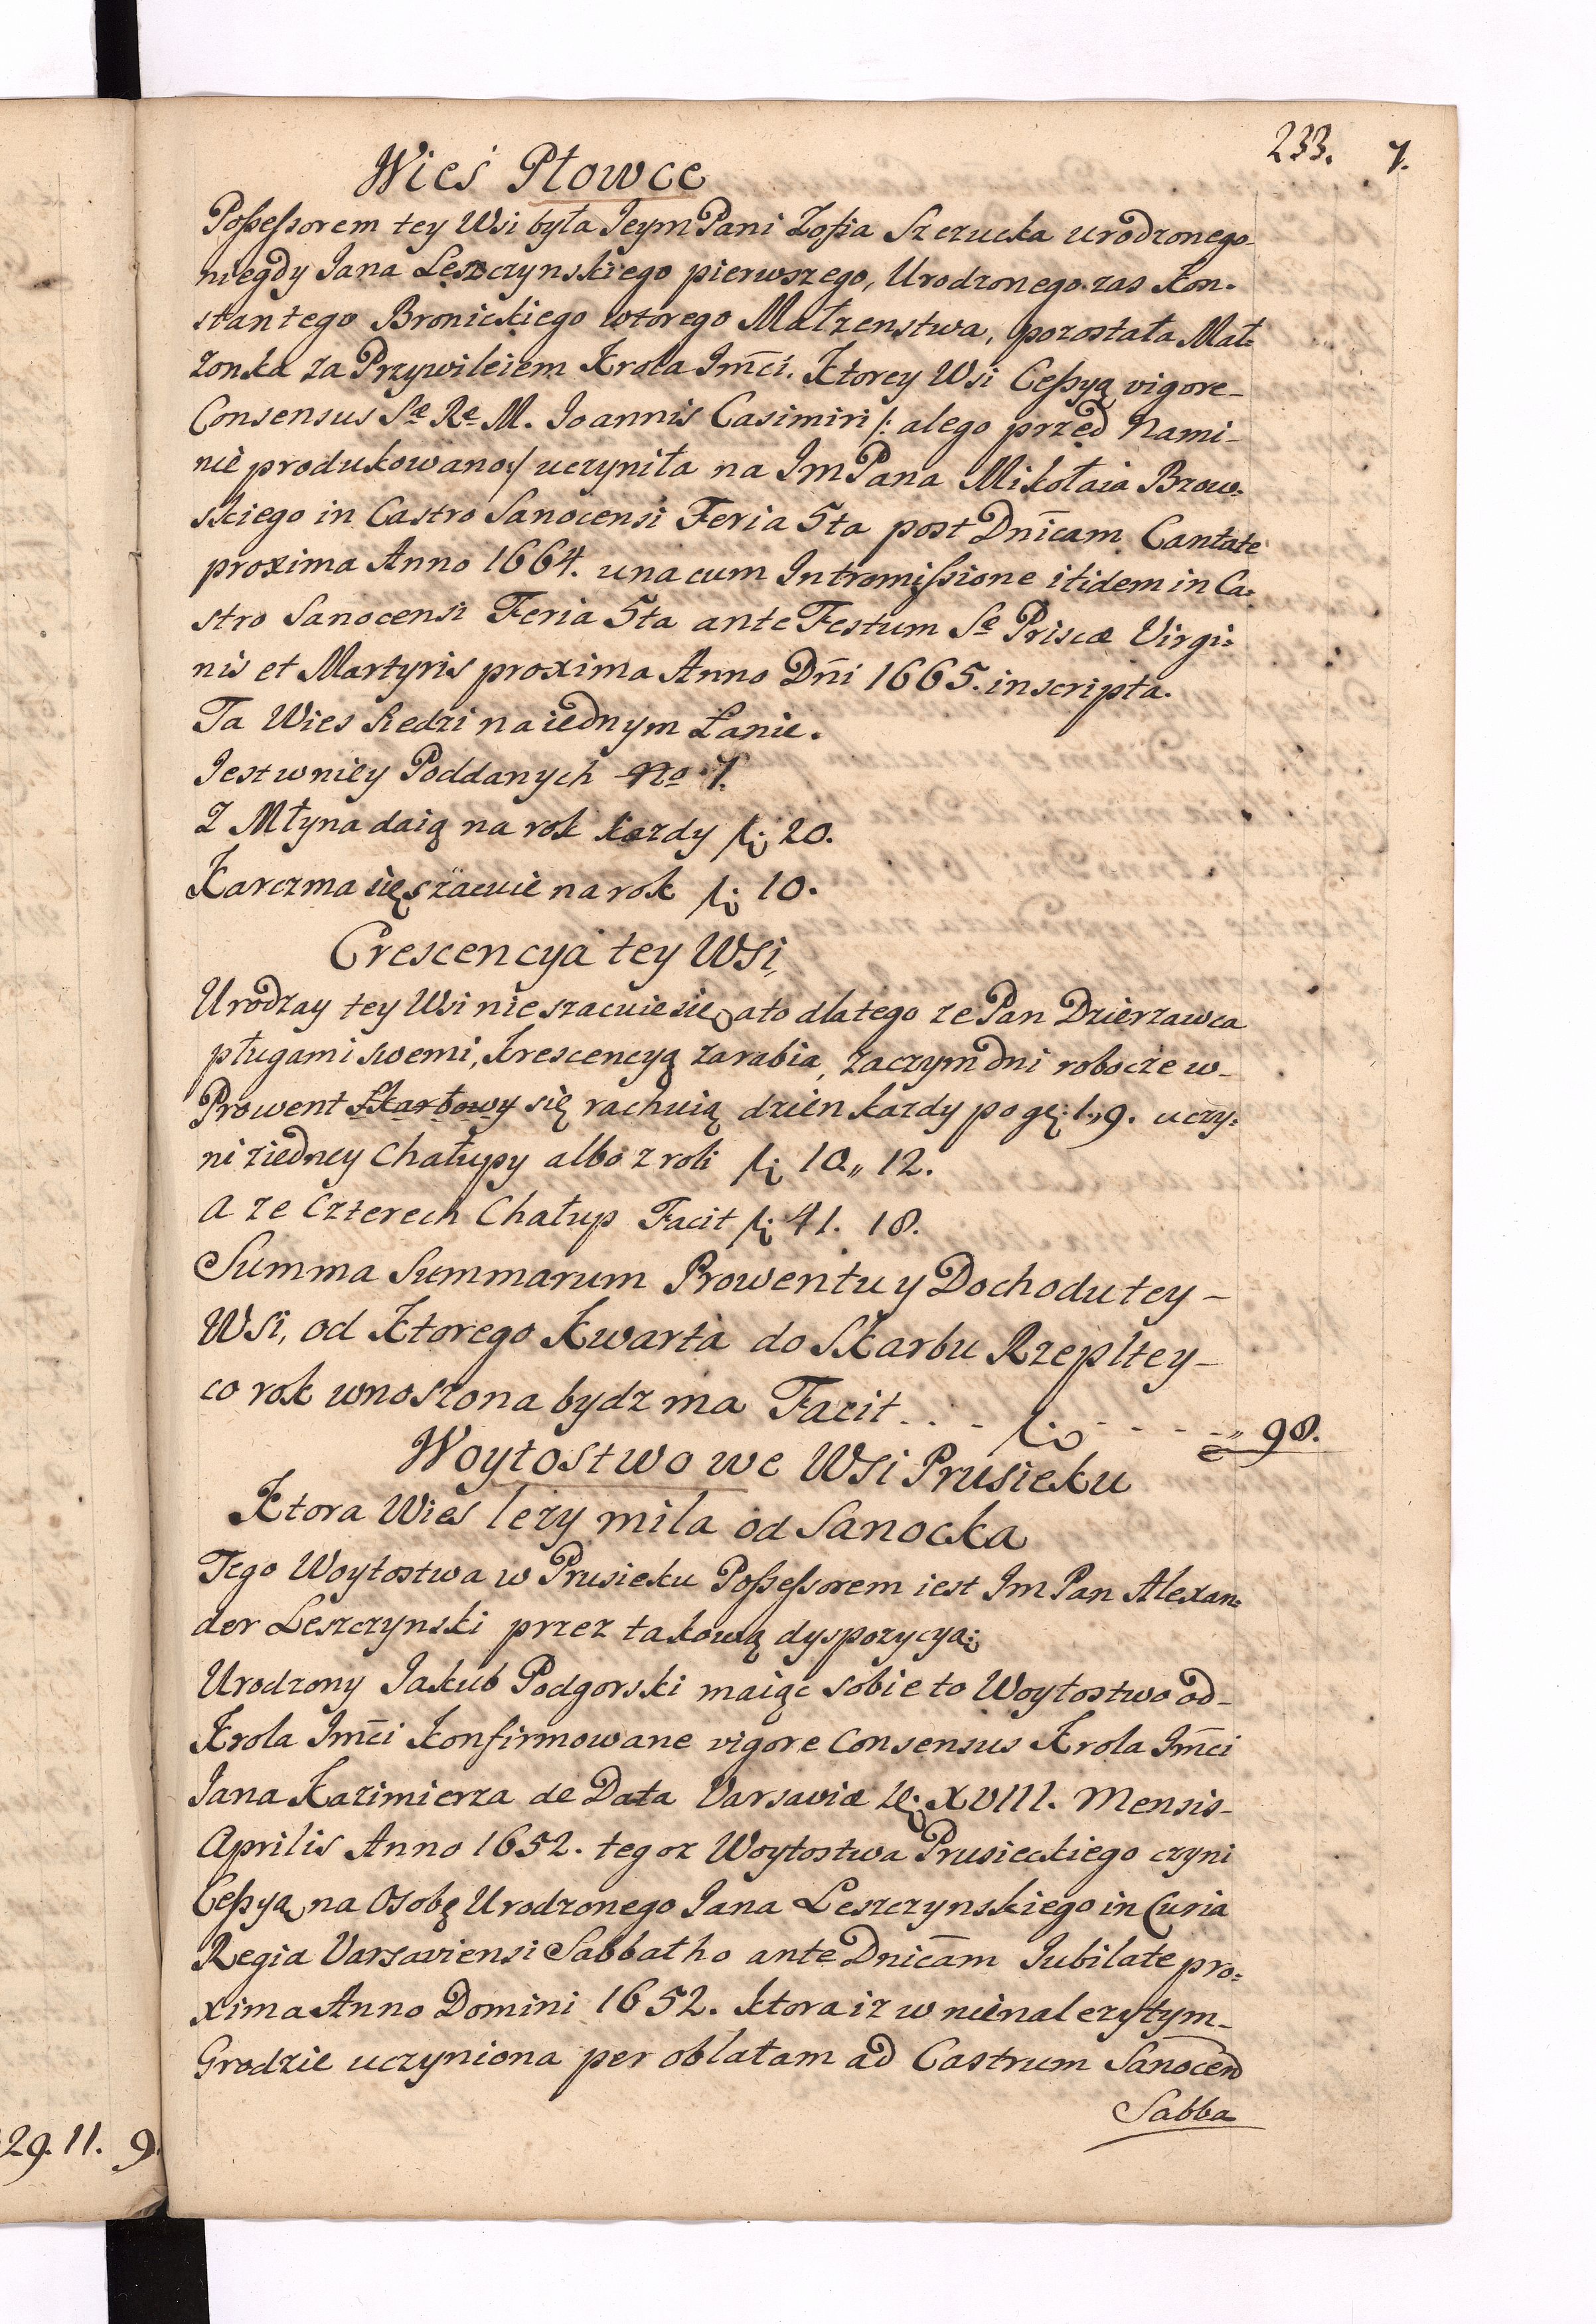 233. 7.
Wieś Płowce
Possessorem tey Wsi była Jeym Pani Zofia Szczucka urodzonego
niegdy Jana Leszczynskiego pierwszego, Urodzonego zas Kon-
stantego Bronickiego wtorego Małzenstwa, pozostała Mał-
zonka za Przywileiem Krola Jmci. Ktorey Wsi Cessyą vigore
Consensus Sæ Ræ M. Joannis Casimiri /: alego przed Nami
nie produkowano :/ uczyniła na Jm Pana Mikołaia Brow-
skiego in Castro Sanocensi Feria 5ta post Dnicam Cantate
proxima Anno 1664. una cum Intromissione itidem in Ca-
stro Sanocensi Feria 5ta ante Festum Sæ Priscæ Virgi-
nis et Martyris proxima Anno Dni 1665. inscripta.
Ta Wies siedzi na iednym Łanie.
Jest w niey Poddanych No 7.
Z Młyna daią na rok kazdy fl: 20.
Karczma się szacuie na rok fl: 10.
Crescencya tey Wsi,
Urodzay tey Wsi nie szacuie się, a to dlatego ze Pan Dzierzawca
pługami swemi, Krescencyą zarabia, zaczym dni robocze w
Prowent Skarbowy się rachuią dzien kazdy po gr: 1,,9. uczy-
ni ziedney Chałupy albo z roli fl: 10,, 12.
a ze Czterech Chałup Facit fl: 41. 18.
Summa Summarum Prowentu y Dochodu tey
Wsi, od Ktorego Kwarta do Skarbu Rzepltey
co rok wnoszona bydz ma Facit . . . fl: - - - - ,, 98.
Woytostwo we Wsi Prusieku
Ktora Wies lezy mila od Sanocka
Tego Woytostwa w Prusieku Possessorem iest Jm Pan Alexan-
der Leszczynski przez takową dyspozycyą:
Urodzony Jakub Podgorski maiąc sobie to Woytostwo od
Krola Jmci Konfirmowane vigore Consensus Krola Jmci
Jana Kazimierza de Data Varsaviæ XVIII. Mensis
Aprilis Anno 1652. tegoz Woytostwa Prusieckiego czyni
Cessyą na Osobę Urodzonego Jana Leszczynskiego in Curia
Regia Varsaviensi Sabbatho ante Dnicam Jubilate pro-
xima Anno Domini 1652. ktora iz w nienalezytym
Grodzie uczyniona per oblatam ad Castrum Sanocen
Sabba
29. 11. 9.